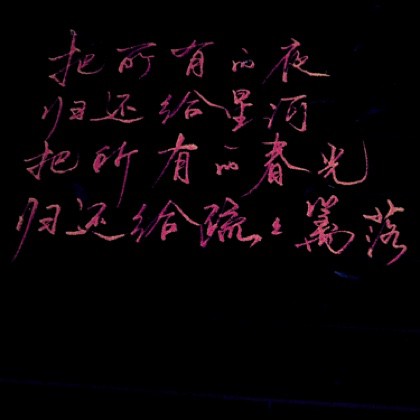 把所有的夜
归还给星河
把所有的春光
归还给疏疏篱落